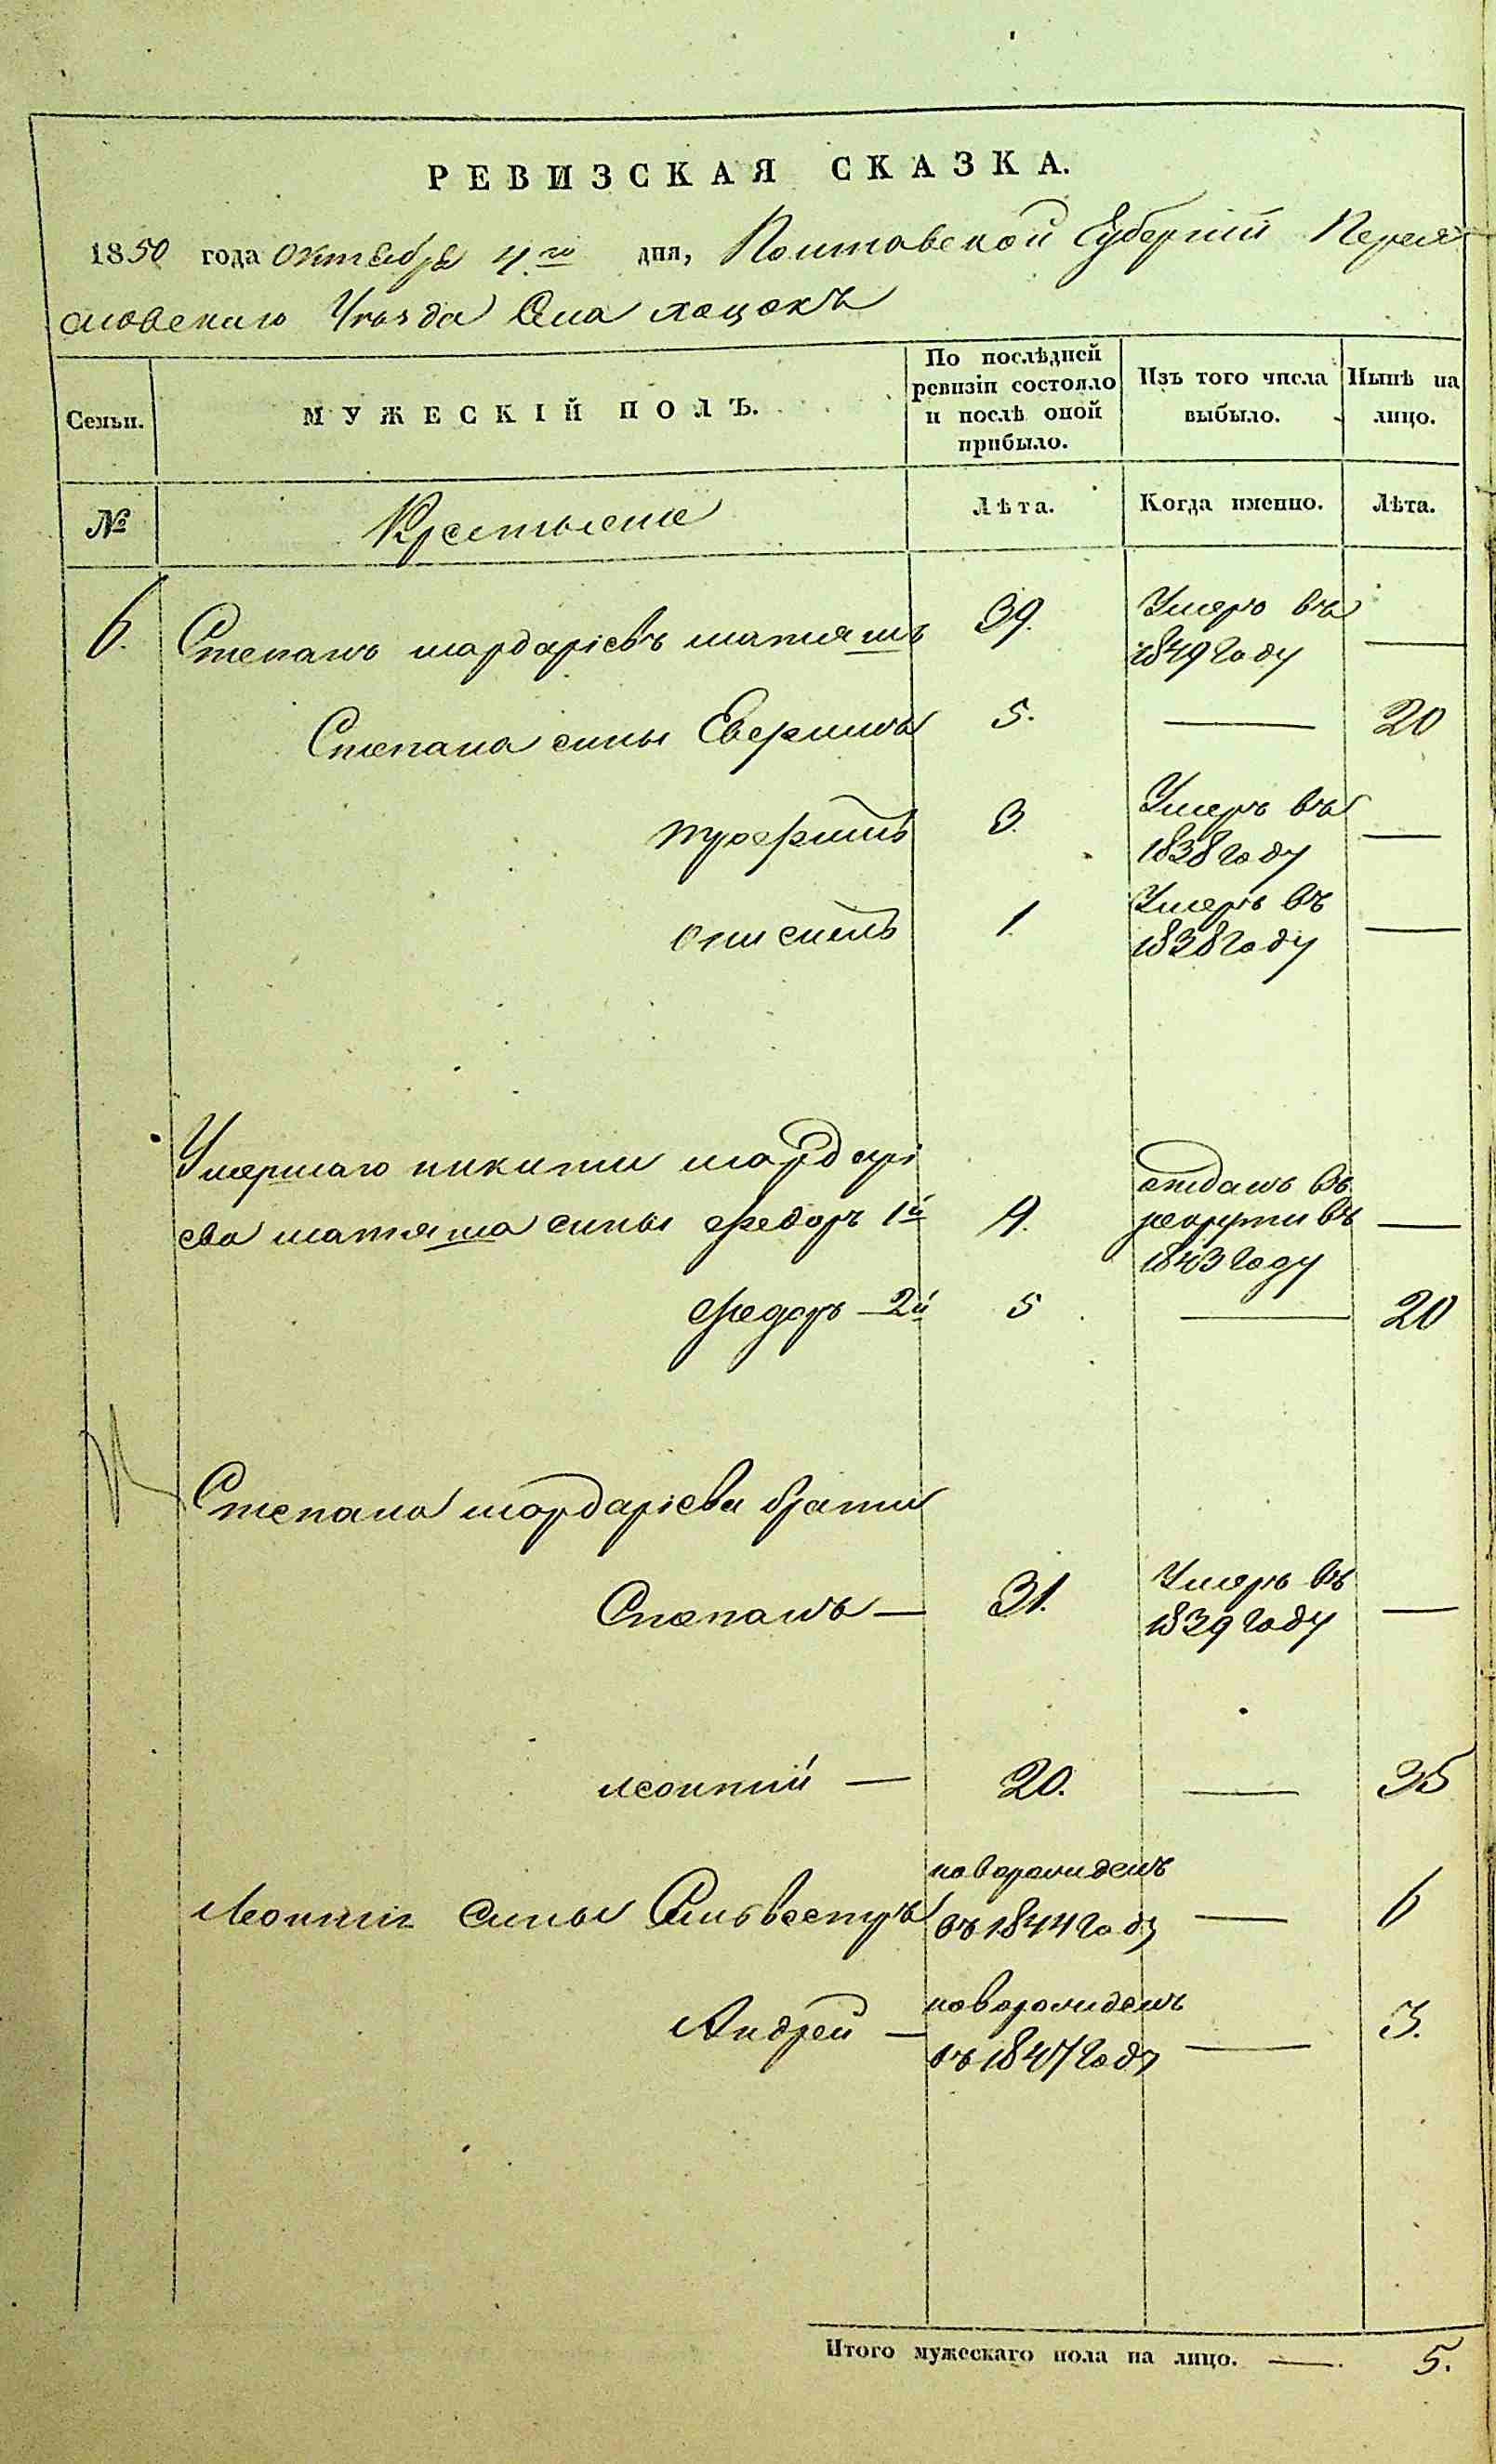 РЕВИЗСКАЯ СКАЗКА.
1850 года октября 4го дня, Полтавской Губернии Перея-
словского Уѣзда Села лецокъ
Семьи.
МУЖЕСКІЙ ПОЛЪ.
По послѣдней ревизіи состояло и послѣ оной прибыло.
Изъ того числа выбыло.
Нынѣ на лицо.
№
Крестьяне
Лѣта.
Когда именно.
Лѣта.
6. Степанъ мордаріевъ матяшъ 39. Умеръ въ
1849 Году —
Степана сыны 5. — 20
3. Умеръ въ
1838 Году —
онисимъ 1 Умеръ въ
1838 Году —
Умершаго никиты мордарі
ева матяша сыны федоръ 1й 9. отданъ въ
рекруты въ
1843 Году —
федоръ — 2й 5 — 20
Степана мордаріева братья
Степанъ — 31. Умеръ въ
1839 Году —
леонтий — 20. — 35
Леонтия сыны Сильвестръ новорожденъ
въ 1844 Году — 6
Андрей — новорожденъ
въ 1847 Году — 3.
Итого мужескаго пола на лицо. — 5.